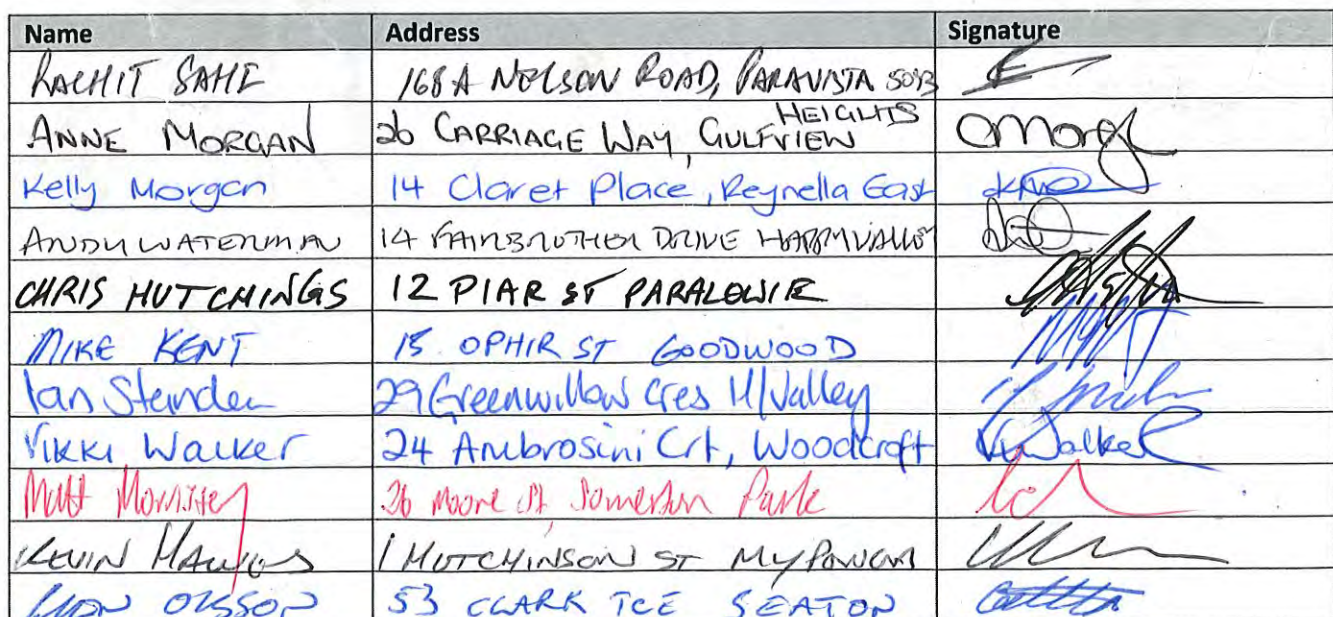 Name Address Signature
RACHIT SAHI 168A NELSON ROAD, PARAVISTA 5093
ANNE MORGAN 26 CARRIAGE WAY, GULFVIEW HEIGHTS
Kelly Morgan 14 Claret Place, Reynella East
ANDY WATERMAN 14 FAIRBROTHER DRIVE HAPPY VALLEY
CHRIS HUTCHINGS 12 PIAR ST PARALOWIE
MIKE KENT 15 OPHIR ST GOODWOOD
Ian 29 Greenwillow Cres H/Valley
Vikki Walker 24 Ambrosini Crt, Woodcroft VWalker
Matt Morrissey 26 Moore St Somerton Park
KEVIN 1 HUTCHINSON ST MYPONGA
OLSSON 53 CLARK TCE SEATON